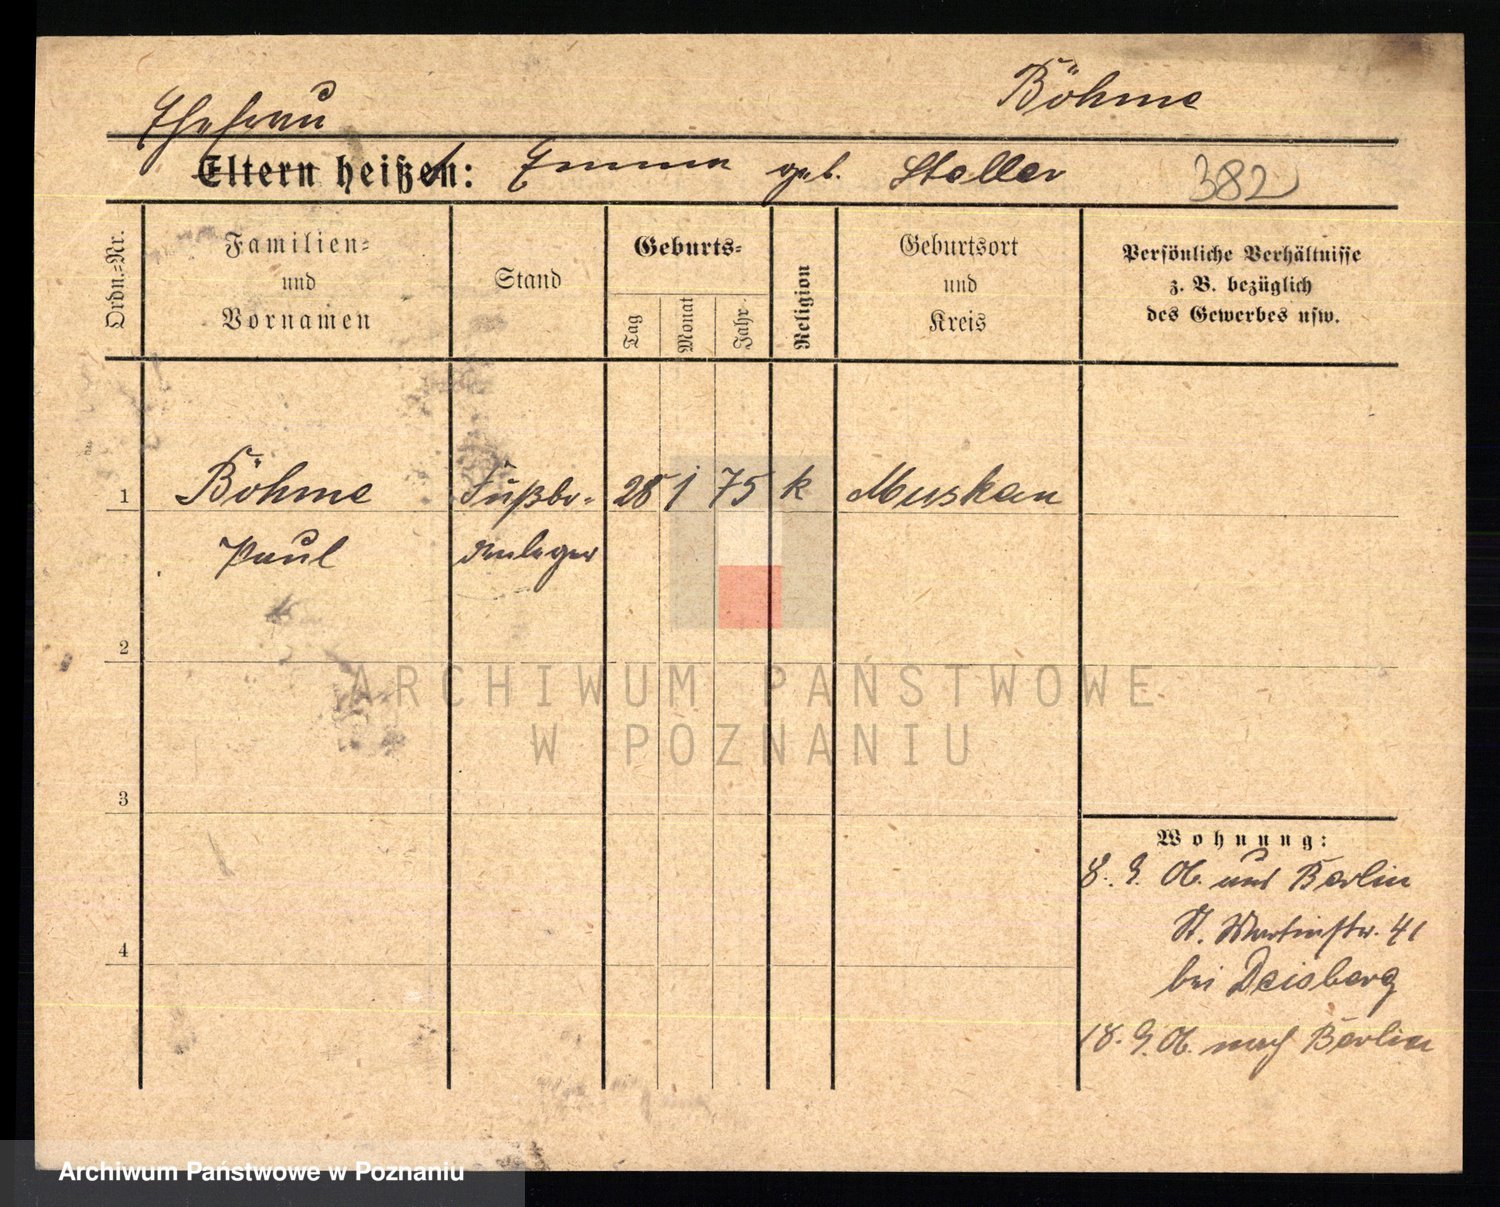 Böhme
Ehefrau
Eltern heißen: Emma geb. Staller
382
Ordn.=Nr.
Familien=
und
Vornamen
Stand
Geburts=
Tag
Monat
Jahr
Religion
Geburtsort
und
Kreis
Persönliche Verhältnisse
z. B. bezüglich
des Gewerbes usw.
1 Böhme 28 1 75 k Muskau
Paul
2
3
4
ARCHIWUM PAŃSTWOWE
W POZNANIU
Wohnung:
8. 9. 06. aus Berlin
St. Martinstr. 41
bei Deisberg
18. 9. 06. nach Berlin
Archiwum Państwowe w Poznaniu